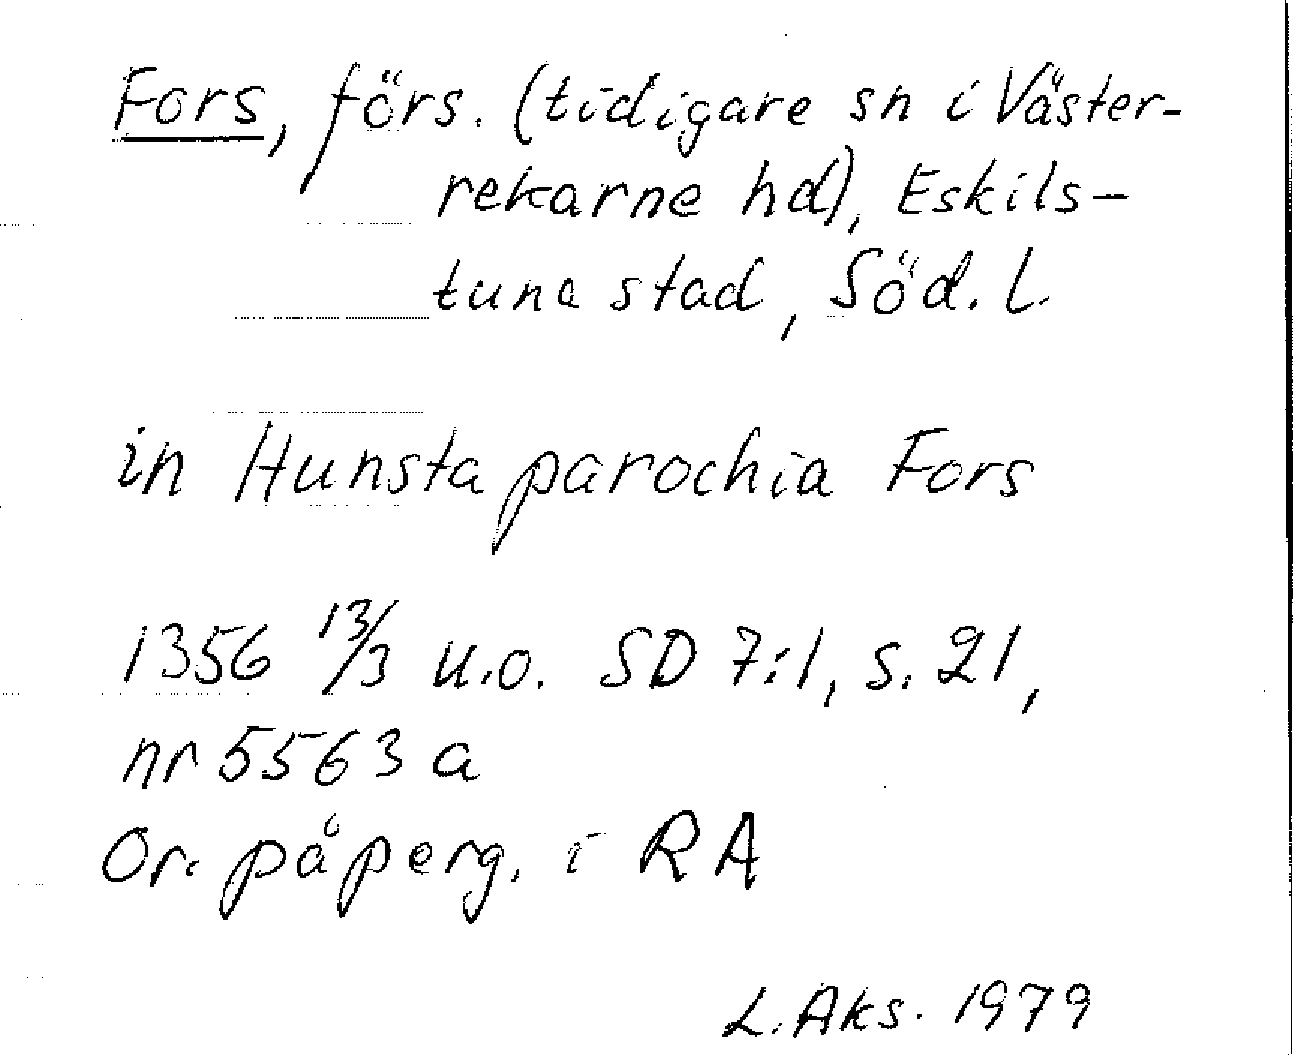 Fors, förs. (tidigare sn i Väster-
rekarne hd), Eskils-
tuna stad, Söd. L.
in Hunsta parochia Fors
1356 13/3 u.o. SD 7:1, s. 21,
nr 5563 a
Or. på perg. i RA
L. Aks. 1979